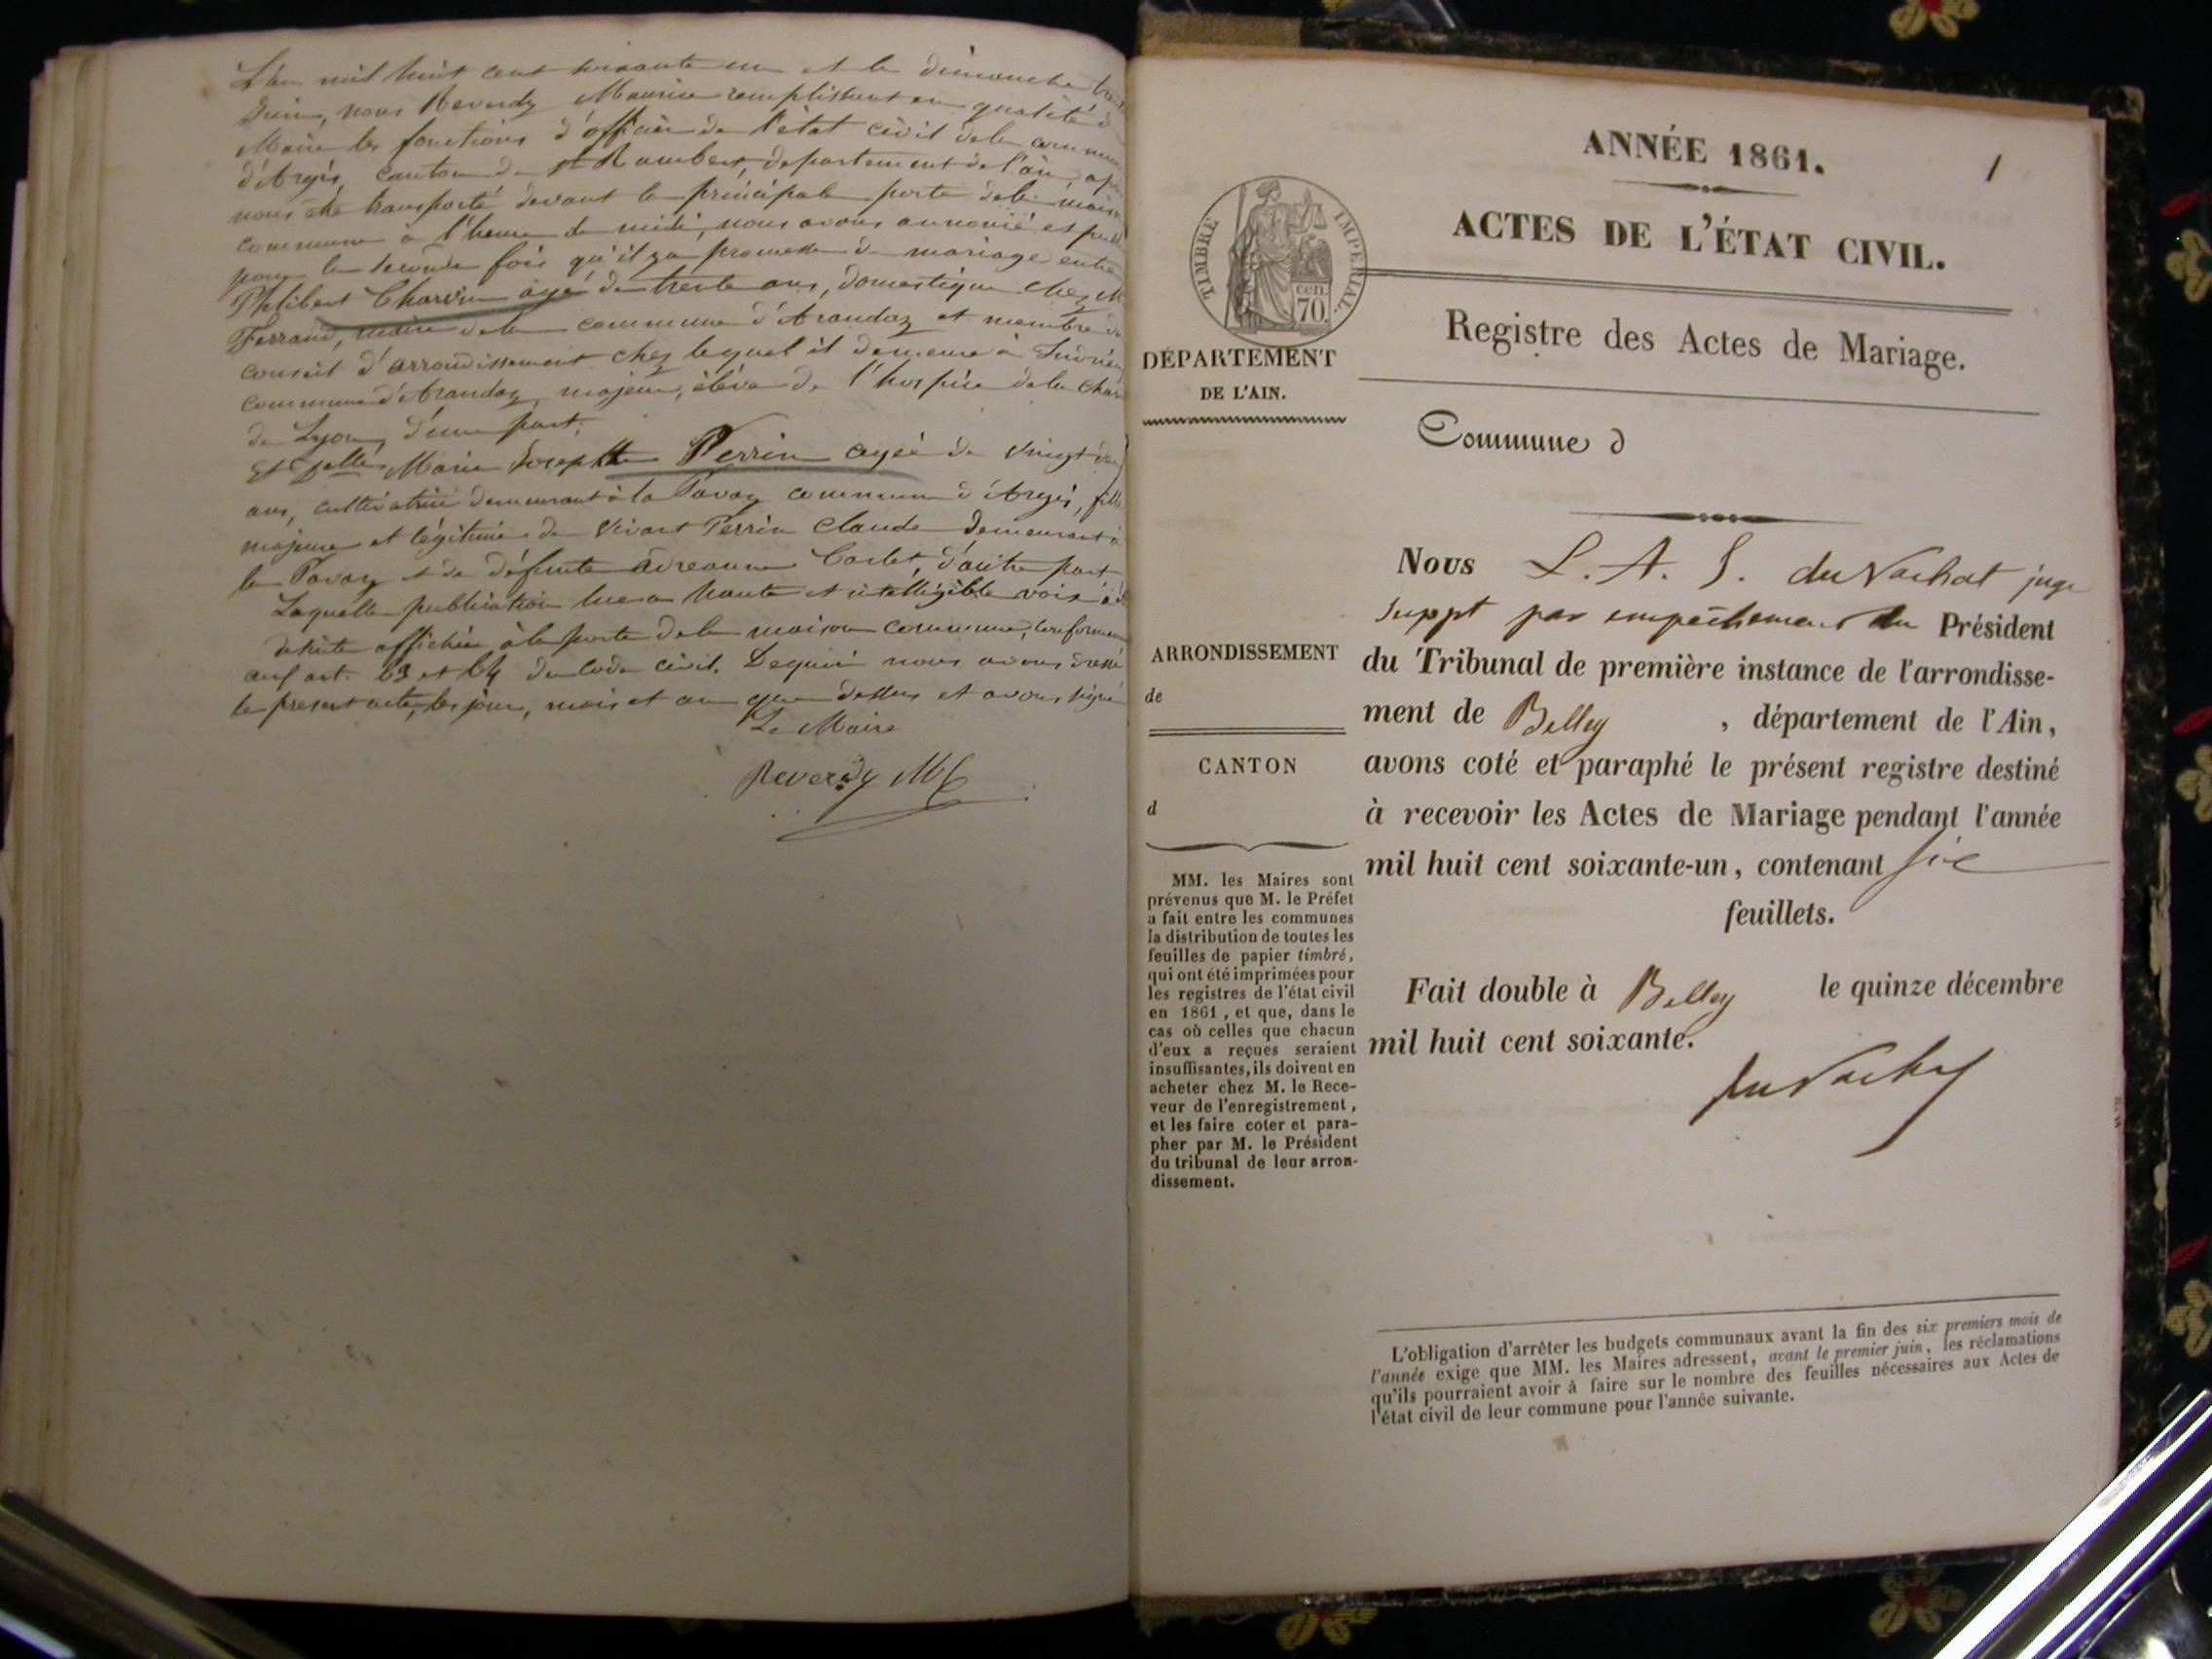 L'an mil huit cent soixante un et le dimanche
Juin, nous Reverdy Maurice remplissant en qualité de
Maire les fonctions d'officier de l'état civil de la commune
d'Argis, canton de St Rambert, département de l'ain, après
nous être transporté devant la principale porte de la maison
commune à l'heure de midi, nous avons annoncé et publié
pour la seconde fois qu'il y a promesse de mariage entre
Philibert Charvin âgé de trente ans, domestique chez Mr
Ferrand, maire de la commune d'Arandaz et membre du
conseil d'arrondissement chez lequel il demeure à
commune d'Arandaz, majeur, élève de l'hospice de la
de Lyon, d'une part;
Et Marie Josephte Perrin agée de vingt
ans, cultivatrice demeurant à la Pavaz commune d'Argis, fille
majeure et légitime de vivant Perrin Claude demeurant à
la Pavaz et de défunte d'autre part
Laquelle publication lue a haute et intelligible voix a été
de suite affichée à la porte de la maison commune, conformément
aux art. 63 et 64 du Code civil. Dequoi nous avons dressé
le present acte, les jour, mois et an que dessus et avons signé
Le Maire
Reverdy
ANNÉE 1861.
1
ACTES DE L'ÉTAT CIVIL.
TIMBRE IMPERIAL.
cen.
70.
Registre des Actes de Mariage.
DÉPARTEMENT
DE L'AIN.
Commune d
Nous L. A. J. du Vachat juge
suppt par empêchement du Président
du Tribunal de première instance de l'arrondisse-
ment de Belley , département de l'Ain,
avons coté et paraphé le présent registre destiné
à recevoir les Actes de Mariage pendant l'année
mil huit cent soixante-un, contenant six
feuillets.
Fait double à Belley le quinze décembre
mil huit cent soixante.
du Vachat
ARRONDISSEMENT
de
CANTON
d
MM. les Maires sont
prévenus que M. le Préfet
a fait entre les communes
la distribution de toutes les
feuilles de papier timbré,
qui ont été imprimées pour
les registres de l'état civil
en 1861, et que, dans le
cas où celles que chacun
d'eux a reçues seraient
insuffisantes, ils doivent en
acheter chez M. le Rece-
veur de l'enregistrement,
et les faire coter et para-
pher par M. le Président
du tribunal de leur arron-
dissement.
L'obligation d'arrêter les budgets communaux avant la fin des six premiers mois de
l'année exige que MM. les Maires adressent, avant le premier juin, les réclamations
qu'ils pourraient avoir à faire sur le nombre des feuilles nécessaires aux Actes de
l'état civil de leur commune pour l'année suivante.